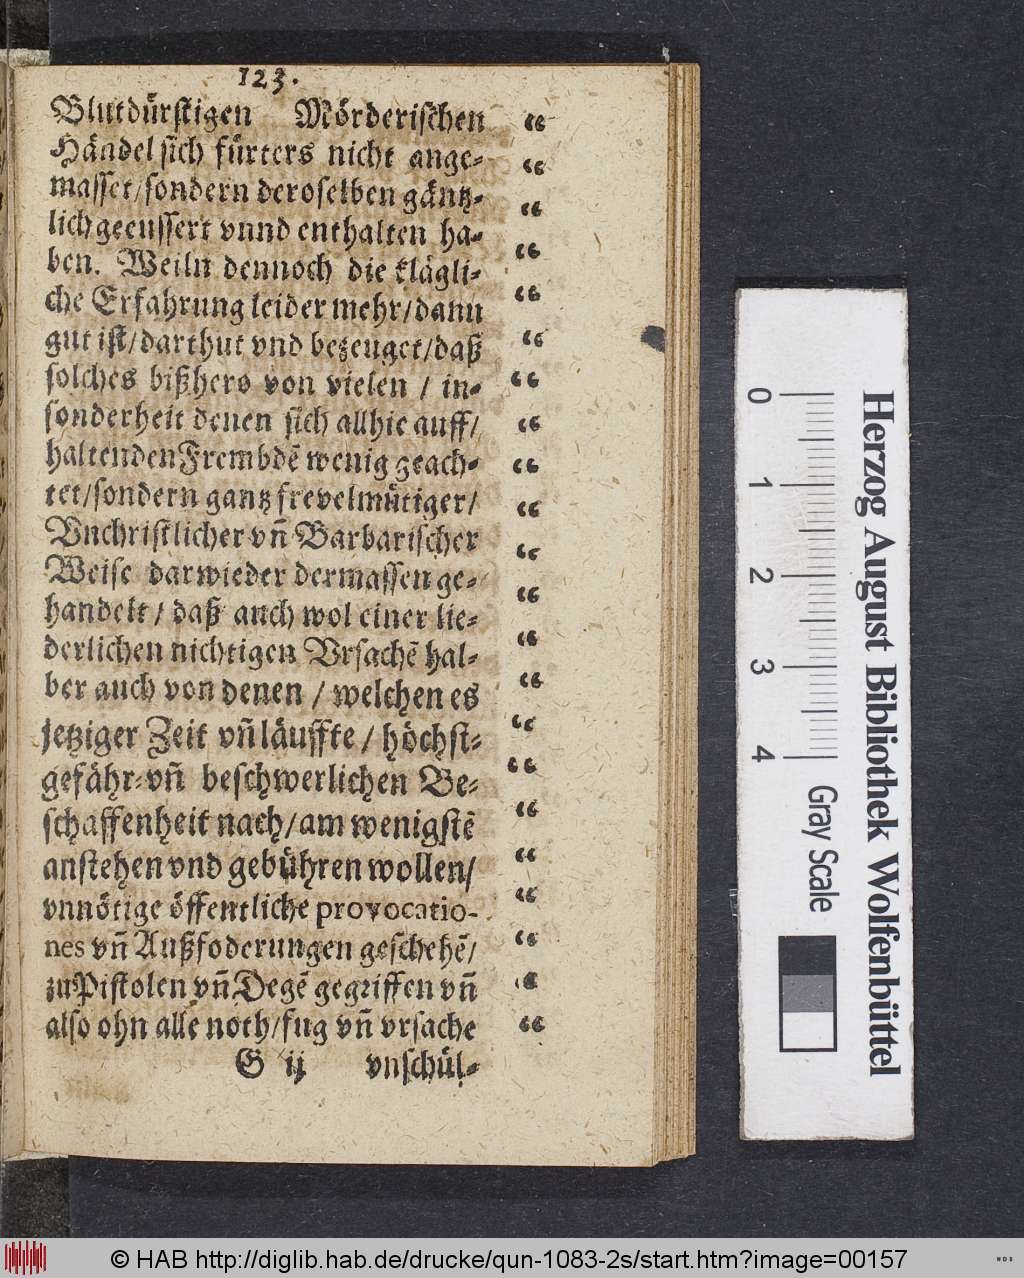 123.
Blutdürſtigen Mörderiſchen “
Händel ſich fürters nicht ange- “
maſſet/ſondern deroſelben gäntz- “
lich geeuſſert vnnd enthalten ha- “
ben. Weiln dennoch die klägli- “
che Erfahrung leider mehr/dann “
gut iſt/darthut vnd bezeuget/daß “
ſolches bißhero von vielen / in- “
ſonderheit denen ſich allhie auff/ “
haltenden Frembdē wenig geach- “
tet/ſondern gantz frevelmütiger/ “
Vnchriſtlicher vñ Barbariſcher “
Weiſe darwieder dermaſſen ge- “
handelt / daß auch wol einer lie- “
derlichen nichtigen Vrſachē hal- “
ber auch von denen / welchen es “
jetziger Zeit vñ läuffte / höchſt- “
gefähr-vñ beſchwerlichen Be- “
ſchaffenheit nach/am wenigſtē “
anſtehen vnd gebühren wollen/ “
vnnötige öffentliche provocatio- “
nes vñ Außfoderungen geſchehē/ “
zu Piſtolen vñ Degē gegriffen vñ “
alſo ohn alle noth/fug vñ vrſache “
G ij vnſchül-
Herzog August Bibliothek Wolfenbüttel
0 1 2 3 4 Gray Scale
© HAB http://diglib.hab.de/drucke/qun-1083-2s/start.htm?image=00157